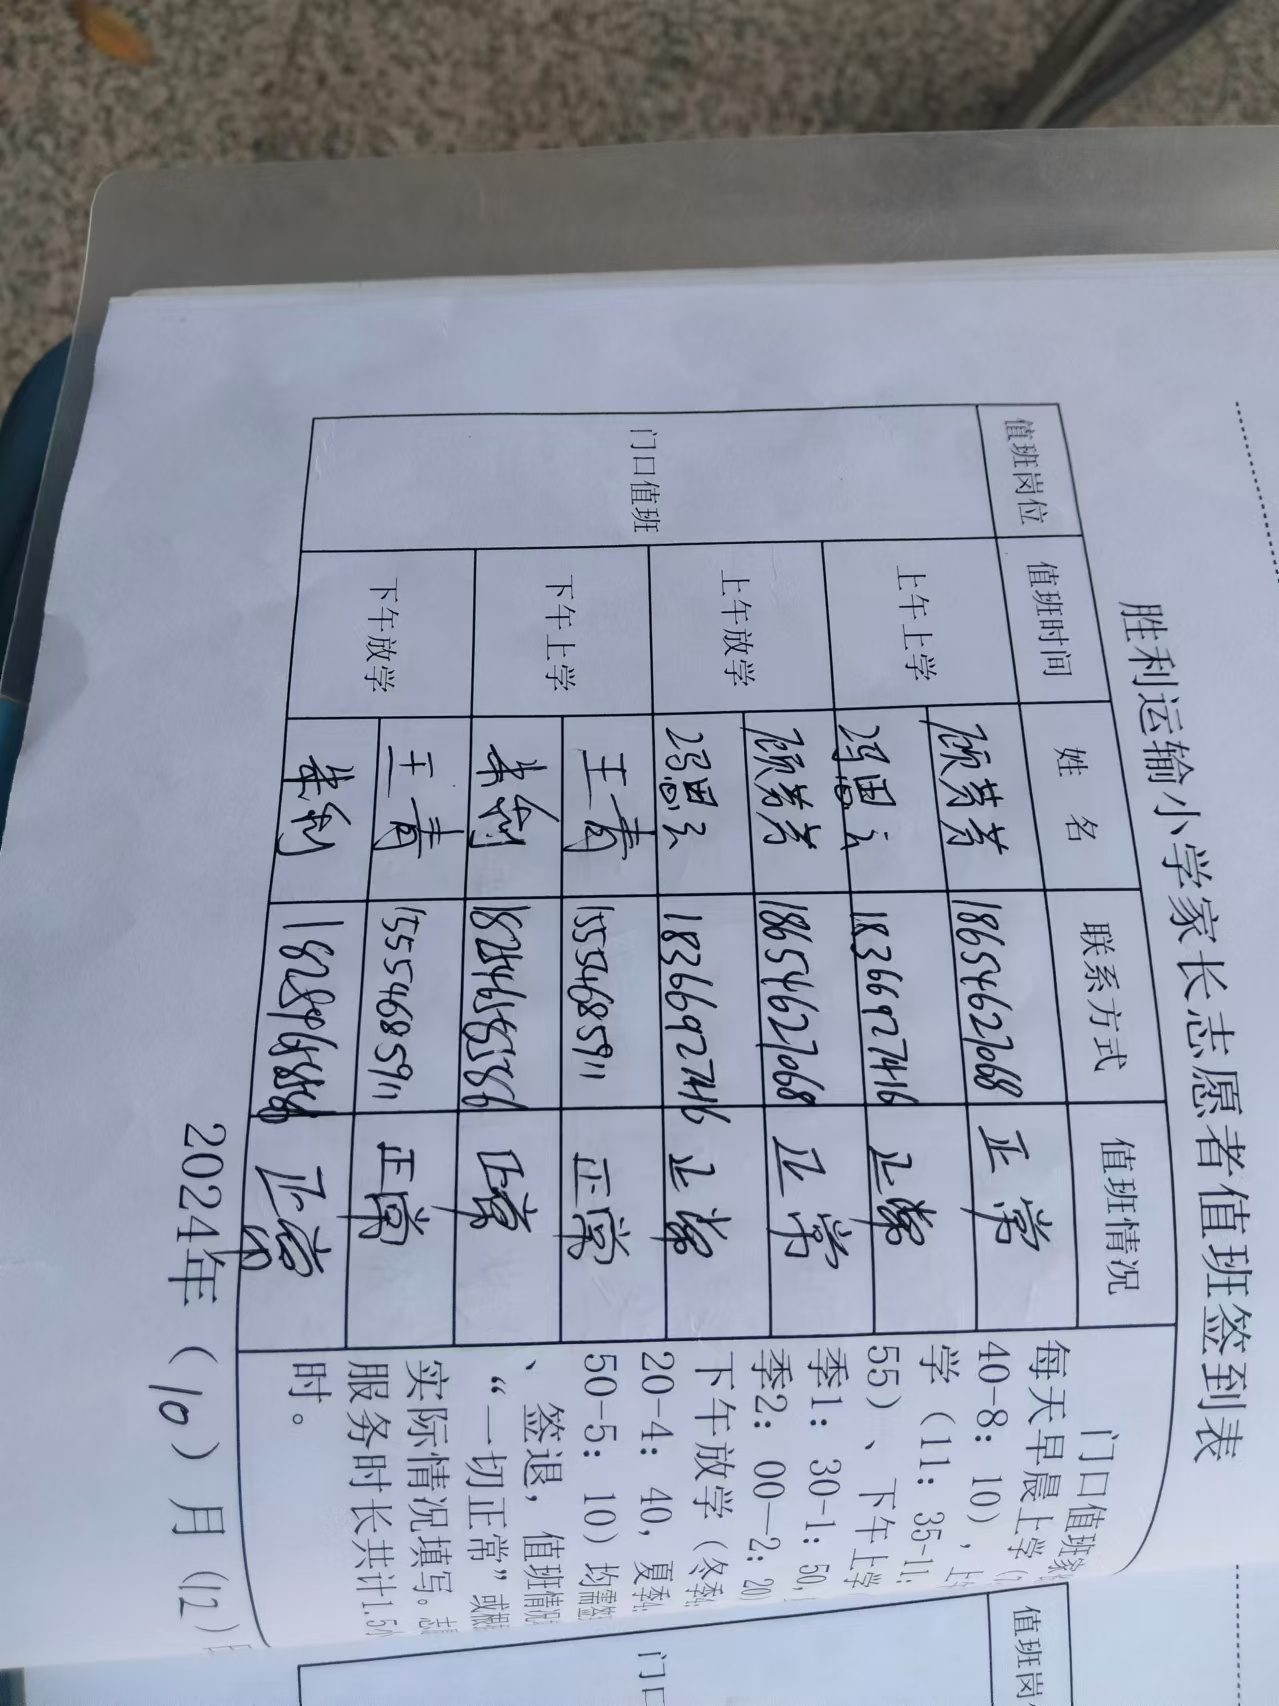 胜利运输小学家长志愿者值班签到表
值班岗位 值班时间 姓 名 联系方式 值班情况
门口值班
上午上学 顾芳芳 18654627068 正常
冯思云 18366927416 正常
上午放学 顾芳芳 18654627068 正常
冯思云 18366927416 正常
下午上学 王青 15554685911 正常
朱剑 正常
下午放学 王青 15554685911 正常
朱剑 正常
门口值班家
每天早晨上学
40-8：10），上
学（11：35-11：
55）、下午上学
季1：30-1：50，
季2：00—2：20)
下午放学（冬季：
20-4：40，夏季：
50-5：10）均需签
、签退，值班情况
“一切正常”或根
实际情况填写。志
服务时长共计1.5小
时。
2024年（10）月（12）日
值班岗
门口